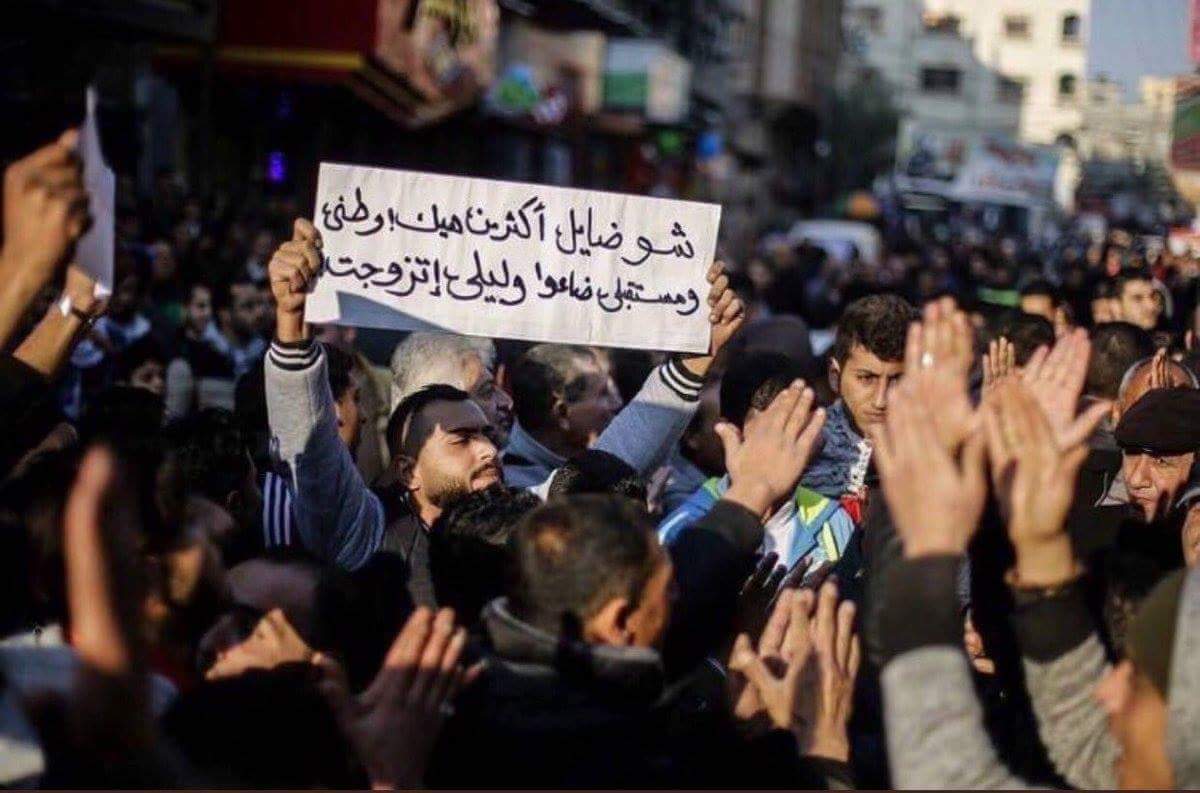 شو ضايل أكثر من هيك! وطني
ومستقبلي ضاعوا وليلى إتزوجت